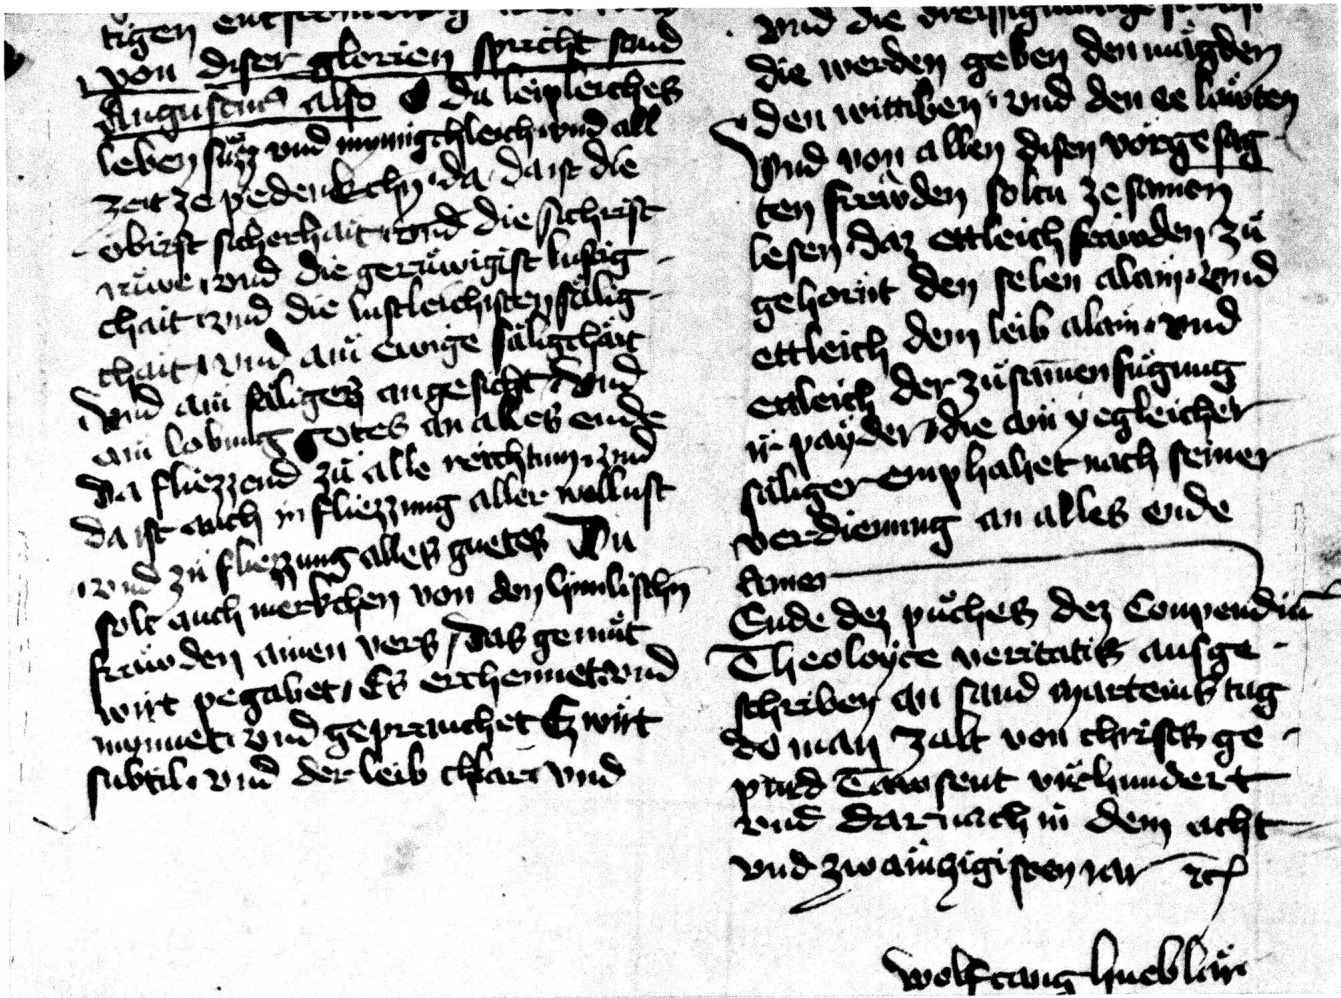 tigen
von diser glorien spricht sand
Augustus also O du leipleiches
leben süzz vnd mynnigchleich vnd all
zeit ze pedenkchn da da ist die
obirst sicherhait vnd die sichrist
rüwe vnd die gerüwigist lustig
chait vnd die lustleichisten sälig
chait vnd ain ewige säligchait
Vnd ain säliges angesicht Vnd
ain lobung gotes an alles ende
Da fliezzend zü alle reichtum vnd
da ist auch in fliezzung aller wollust
vnd zü fliezzung alles guetes Du
solt auch merkchen von den himlischn
fräwden ainen vers / Das gemüt
wirt pegabet / Es erchennet vnd
mynnet vnd geprauchet Ez wirt
subtil vnd der leib chlar vnd
vnd die
die werden geben den mägden
den wittiben vnd den ee läwten
Vnd von allen disen vorgesag
ten frewden soltu ze samen
lesen daz ettleich fräwden zü
gehornt den selen alain vnd
ettleich dem leib alain vnd
ettleich der züsam̄enfügung
ir payder die ain yegleicher
säliger emphahet nach seiner
verdienung an alles ende
Amen
Ende dez püches dez Conpendiū
Theoloyce veritatis ausge
schriben an sand marteins tag
do man zalt von christs ge
purd Tawsent vierhundert
vnd darnach in dem acht
vnd zwainzigisten iar
wolfcang hueblär